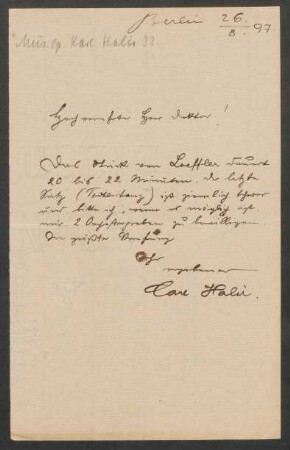 Berlin 26/8. 97
Mus. ep. Karl Halir 32
Hochverehrter Herr Doktor!
Das Stück von Loeffler dauert
20 bis 22 Minuten. Der letzte
Satz (Todtentanz) ist ziemlich schwer
und bitte ich, wenn es möglich ist,
mir 2 Orchesterproben zu bewilligen.
In größter Verehrung
Ihr
ergebener
Carl Halir.